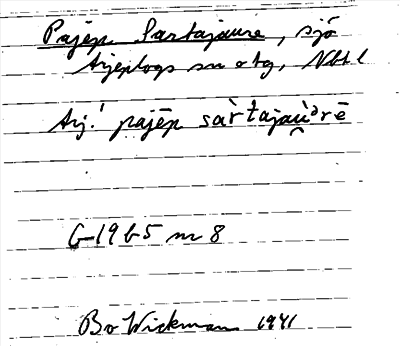 Pajēp Sartajaure, sjö
Arjeplogs sn o tg, Nbtl
Arj.! pajēp sàrtajau̯ᵊrē
G-1965 nr 8
Bo Wickman 1941